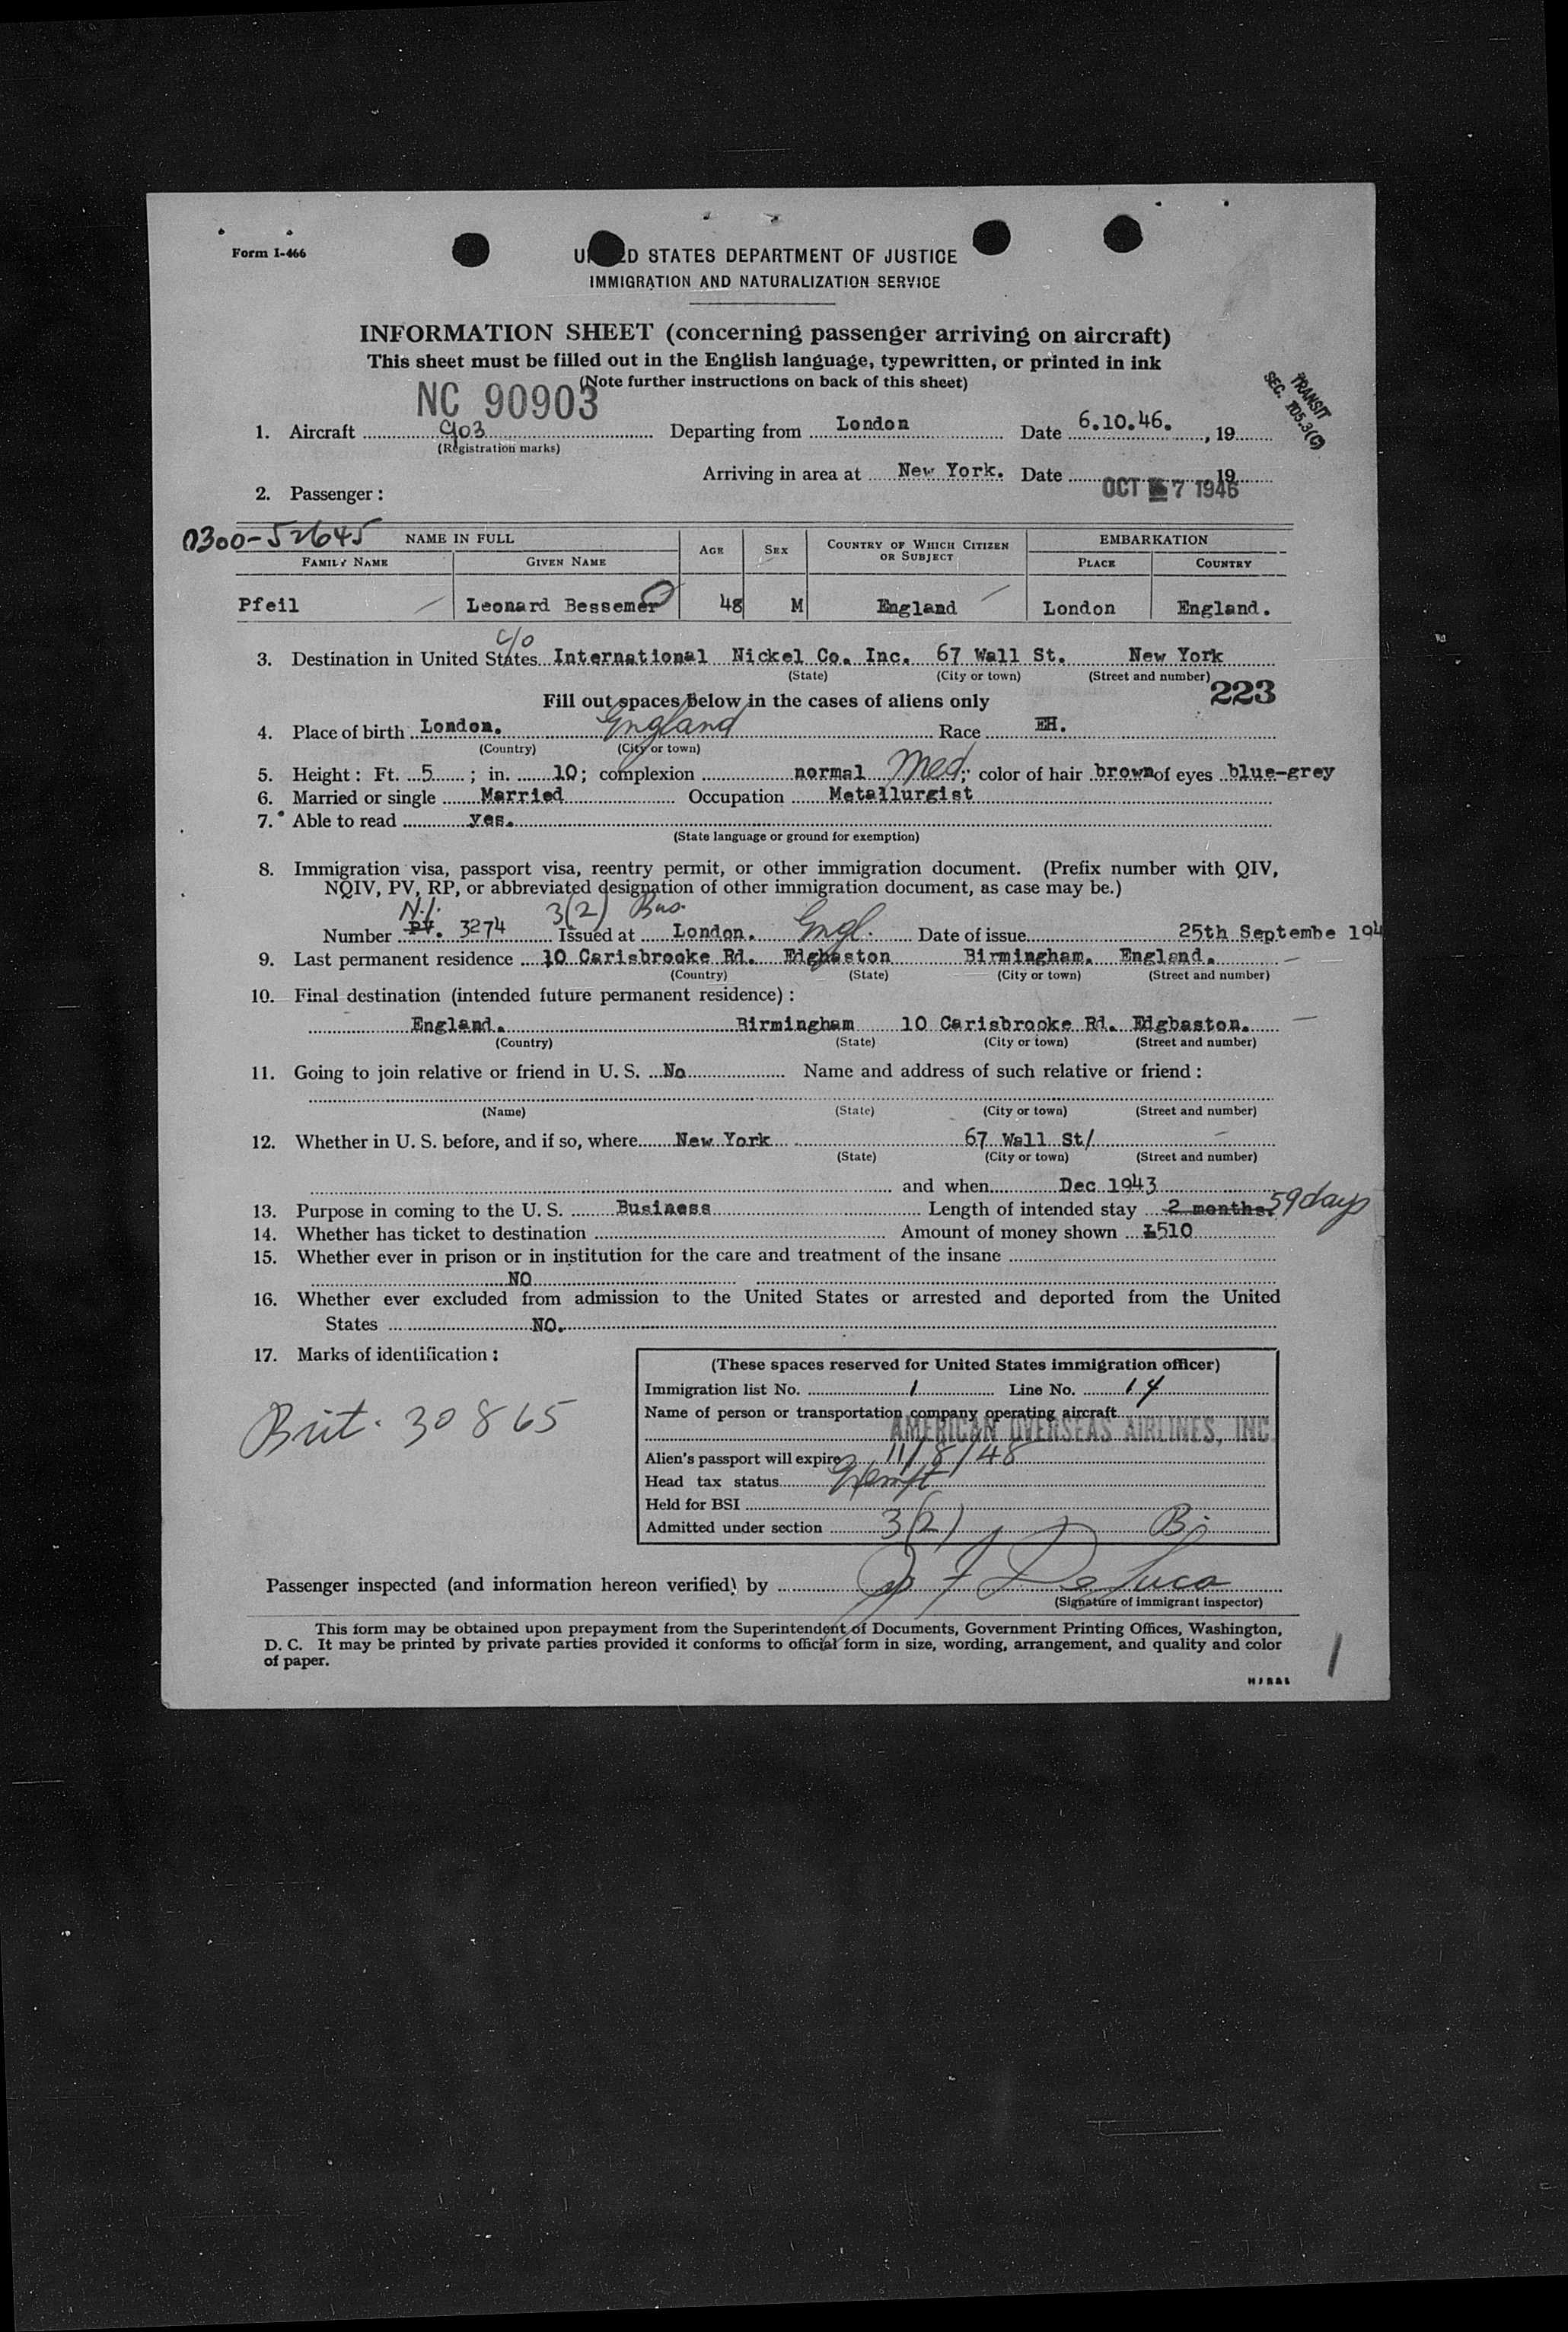 Form I-466
UNITED STATES DEPARTMENT OF JUSTICE
IMMIGRATION AND NATURALIZATION SERVICE
INFORMATION SHEET (concerning passenger arriving on aircraft)
This sheet must be filled out in the English language, typewritten, or printed in ink
(Note further instructions on back of this sheet)
NC 90903
TRANSIT
SEC. 105.3(C)
1. Aircraft 903 Departing from London Date 6.10.46. , 19
(Registration marks)
Arriving in area at New York. Date , 19
OCT 7 1946
2. Passenger:
0300-52645
NAME IN FULL AGE SEX COUNTRY OF WHICH CITIZEN OR SUBJECT EMBARKATION
FAMILY NAME GIVEN NAME PLACE COUNTRY
Pfeil Leonard Bessemer 48 M England London England.
c/o
3. Destination in United States International Nickel Co. Inc. 67 Wall St. New York
(State) (City or town) (Street and number)
223
Fill out spaces below in the cases of aliens only
4. Place of birth London. England Race EH.
(Country) (City or town)
5. Height: Ft. 5 ; in. 10; complexion normal Med; color of hair brown of eyes blue-grey
6. Married or single Married Occupation Metallurgist
7. Able to read yes.
(State language or ground for exemption)
8. Immigration visa, passport visa, reentry permit, or other immigration document. (Prefix number with QIV,
NQIV, PV, RP, or abbreviated designation of other immigration document, as case may be.)
3(2) Bus.
Number PV. 3274 Issued at London. Engl. Date of issue 25th Septembe 194
9. Last permanent residence 10 Carisbrooke Rd. Edgbaston Birmingham. England.
(Country) (State) (City or town) (Street and number)
10. Final destination (intended future permanent residence):
England. Birmingham 10 Carisbrooke Rd. Edgbaston.
(Country) (State) (City or town) (Street and number)
11. Going to join relative or friend in U. S. No Name and address of such relative or friend:
(Name) (State) (City or town) (Street and number)
12. Whether in U. S. before, and if so, where New York 67 Wall St/
(State) (City or town) (Street and number)
and when Dec 1943
13. Purpose in coming to the U. S. Business Length of intended stay 2 months. 59 days
14. Whether has ticket to destination Amount of money shown £510
15. Whether ever in prison or in institution for the care and treatment of the insane
NO
16. Whether ever excluded from admission to the United States or arrested and deported from the United
States NO.
17. Marks of identification:
Brit. 30865
(These spaces reserved for United States immigration officer)
Immigration list No. 1 Line No. 14
Name of person or transportation company operating aircraft
AMERICAN OVERSEAS AIRLINES, INC.
Alien's passport will expire 11/8/48
Head tax status Exempt
Held for BSI
Admitted under section 3(2) B.
Passenger inspected (and information hereon verified) by J F DeLuca
(Signature of immigrant inspector)
This form may be obtained upon prepayment from the Superintendent of Documents, Government Printing Offices, Washington,
D. C. It may be printed by private parties provided it conforms to official form in size, wording, arrangement, and quality and color
of paper.
1